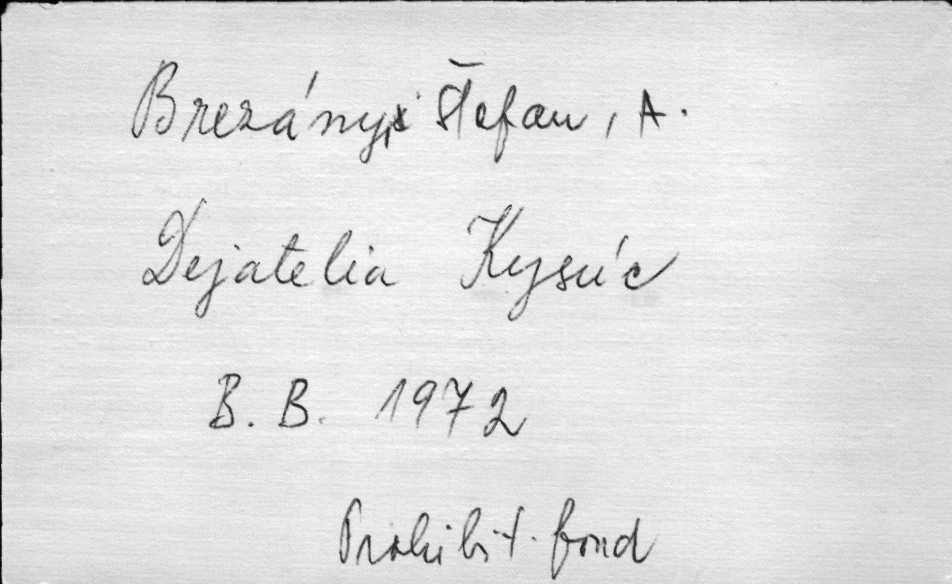 Brezány, Štefan, A.
Dejatelia Kysúc
B. B. 1972
Prohibit. fond